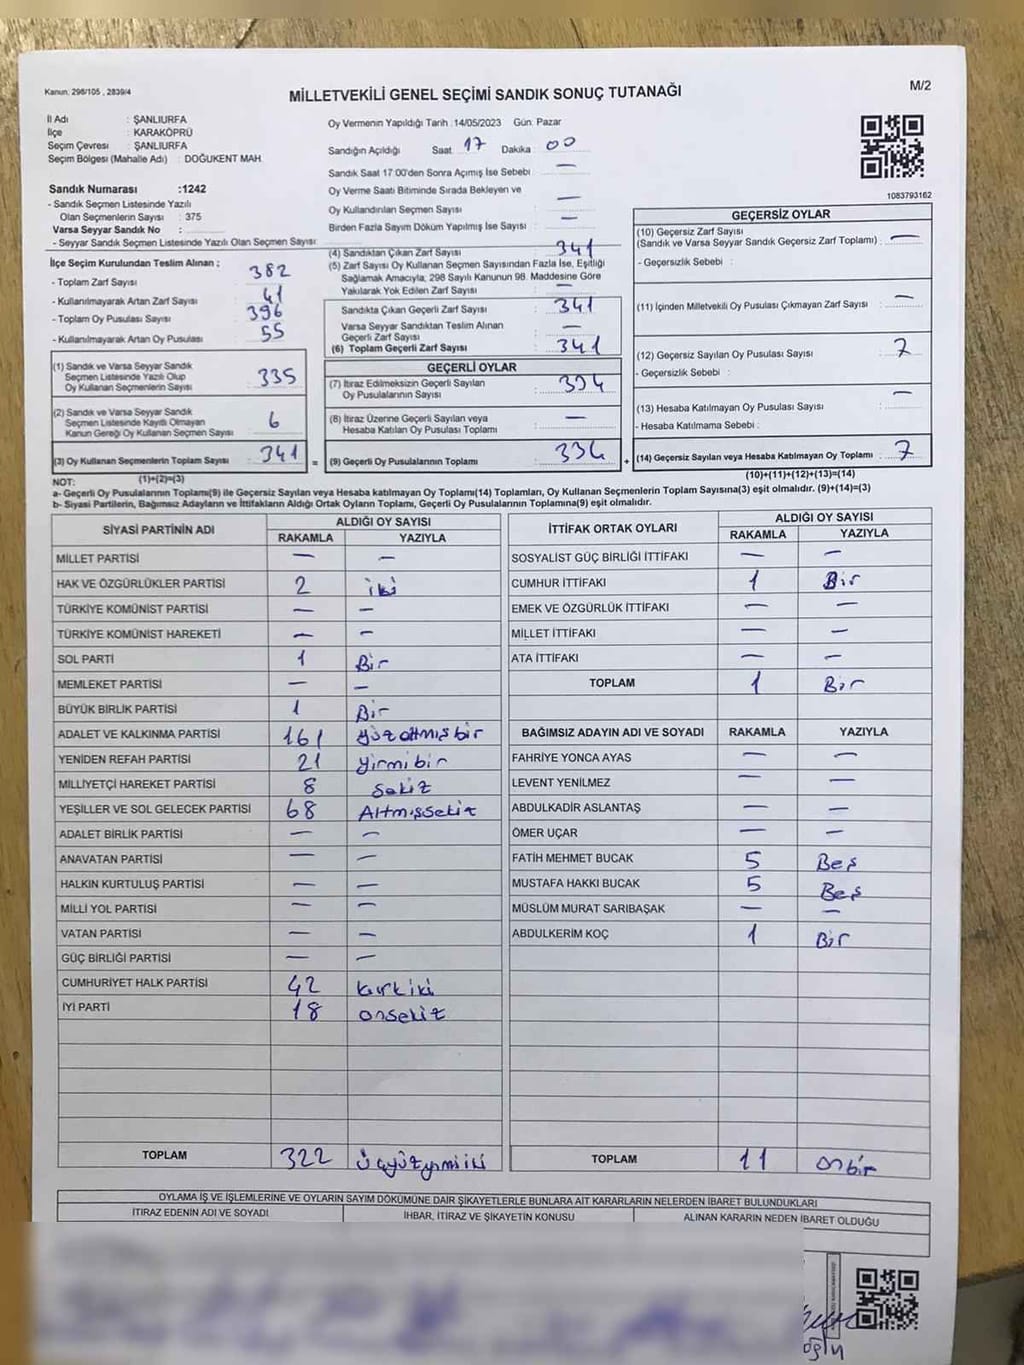 Kanun: 298/105 , 2839/4
MİLLETVEKİLİ GENEL SEÇİMİ SANDIK SONUÇ TUTANAĞI
M/2
İl Adı : ŞANLIURFA
İlçe : KARAKÖPRÜ
Seçim Çevresi : ŞANLIURFA
Seçim Bölgesi (Mahalle Adı) : DOĞUKENT MAH.
Sandık Numarası :1242
- Sandık Seçmen Listesinde Yazılı
Olan Seçmenlerin Sayısı : 375
Varsa Seyyar Sandık No :
- Seyyar Sandık Seçmen Listesinde Yazılı Olan Seçmen Sayısı:
Oy Vermenin Yapıldığı Tarih :14/05/2023 Gün: Pazar
Sandığın Açıldığı Saat 17 Dakika 00
Sandık Saat 17:00'den Sonra Açımış İse Sebebi —
Oy Verme Saati Bitiminde Sırada Bekleyen ve
Oy Kullandırılan Seçmen Sayısı —
Birden Fazla Sayım Döküm Yapılmış İse Sayısı : —
1083793162
İlçe Seçim Kurulundan Teslim Alınan ;
- Toplam Zarf Sayısı : 382
- Kullanılmayarak Artan Zarf Sayısı : 41
- Toplam Oy Pusulası Sayısı : 396
- Kullanılmayarak Artan Oy Pusulası : 55
(1) Sandık ve Varsa Seyyar Sandık
Seçmen Listesinde Yazılı Olup
Oy Kullanan Seçmenlerin Sayısı : 335
(2) Sandık ve Varsa Seyyar Sandık
Seçmen Listesinde Kayıtlı Olmayan
Kanun Gereği Oy Kullanan Seçmen Sayısı : 6
(3) Oy Kullanan Seçmenlerin Toplam Sayısı : 341
(4) Sandıktan Çıkan Zarf Sayısı : 341
(5) Zarf Sayısı Oy Kullanan Seçmen Sayısından Fazla İse, Eşitliği
Sağlamak Amacıyla, 298 Sayılı Kanunun 98. Maddesine Göre
Yakılarak Yok Edilen Zarf Sayısı : —
Sandıkta Çıkan Geçerli Zarf Sayısı : 341
Varsa Seyyar Sandıktan Teslim Alınan
Geçerli Zarf Sayısı : —
(6) Toplam Geçerli Zarf Sayısı : 341
GEÇERLİ OYLAR
(7) İtiraz Edilmeksizin Geçerli Sayılan
Oy Pusulalarının Sayısı : 334
(8) İtiraz Üzerine Geçerli Sayılan veya
Hesaba Katılan Oy Pusulası Toplamı : —
= (9) Geçerli Oy Pusulalarının Toplamı : 334
GEÇERSİZ OYLAR
(10) Geçersiz Zarf Sayısı
(Sandık ve Varsa Seyyar Sandık Geçersiz Zarf Toplamı) : —
- Geçersizlik Sebebi :
(11) İçinden Milletvekili Oy Pusulası Çıkmayan Zarf Sayısı : —
(12) Geçersiz Sayılan Oy Pusulası Sayısı : 7
- Geçersizlik Sebebi :
(13) Hesaba Katılmayan Oy Pusulası Sayısı : —
- Hesaba Katılmama Sebebi :
+ (14) Geçersiz Sayılan veya Hesaba Katılmayan Oy Toplamı : 7
NOT: (1)+(2)=(3)
(10)+(11)+(12)+(13)=(14)
a- Geçerli Oy Pusulalarının Toplamı(9) ile Geçersiz Sayılan veya Hesaba katılmayan Oy Toplamı(14) Toplamları, Oy Kullanan Seçmenlerin Toplam Sayısına(3) eşit olmalıdır. (9)+(14)=(3)
b- Siyasi Partilerin, Bağımsız Adayların ve İttifakların Aldığı Ortak Oyların Toplamı, Geçerli Oy Pusulalarının Toplamına(9) eşit olmalıdır.
SİYASİ PARTİNİN ADI ALDIĞI OY SAYISI
RAKAMLA YAZIYLA
MİLLET PARTİSİ — —
HAK VE ÖZGÜRLÜKLER PARTİSİ 2 iki
TÜRKİYE KOMÜNİST PARTİSİ — —
TÜRKİYE KOMÜNİST HAREKETİ — —
SOL PARTİ 1 Bir
MEMLEKET PARTİSİ — —
BÜYÜK BİRLİK PARTİSİ 1 Bir
ADALET VE KALKINMA PARTİSİ 161 yüzaltmışbir
YENİDEN REFAH PARTİSİ 21 yirmibir
MİLLİYETÇİ HAREKET PARTİSİ 8 Sekiz
YEŞİLLER VE SOL GELECEK PARTİSİ 68 Altmışsekiz
ADALET BİRLİK PARTİSİ — —
ANAVATAN PARTİSİ — —
HALKIN KURTULUŞ PARTİSİ — —
MİLLİ YOL PARTİSİ — —
VATAN PARTİSİ — —
GÜÇ BİRLİĞİ PARTİSİ — —
CUMHURİYET HALK PARTİSİ 42 kırkiki
İYİ PARTİ 18 onsekiz
TOPLAM 322 üçyüzyirmiiki
İTTİFAK ORTAK OYLARI ALDIĞI OY SAYISI
RAKAMLA YAZIYLA
SOSYALİST GÜÇ BİRLİĞİ İTTİFAKI — —
CUMHUR İTTİFAKI 1 Bir
EMEK VE ÖZGÜRLÜK İTTİFAKI — —
MİLLET İTTİFAKI — —
ATA İTTİFAKI — —
TOPLAM 1 Bir
BAĞIMSIZ ADAYIN ADI VE SOYADI RAKAMLA YAZIYLA
FAHRİYE YONCA AYAS — —
LEVENT YENİLMEZ — —
ABDULKADİR ASLANTAŞ — —
ÖMER UÇAR — —
FATİH MEHMET BUCAK 5 Beş
MUSTAFA HAKKI BUCAK 5 Beş
MÜSLÜM MURAT SARIBAŞAK — —
ABDULKERİM KOÇ 1 Bir
TOPLAM 11 onbir
OYLAMA İŞ VE İŞLEMLERİNE VE OYLARIN SAYIM DÖKÜMÜNE DAİR ŞİKAYETLERLE BUNLARA AİT KARARLARIN NELERDEN İBARET BULUNDUKLARI
İTİRAZ EDENİN ADI VE SOYADI İHBAR, İTİRAZ VE ŞİKAYETİN KONUSU ALINAN KARARIN NEDEN İBARET OLDUĞU